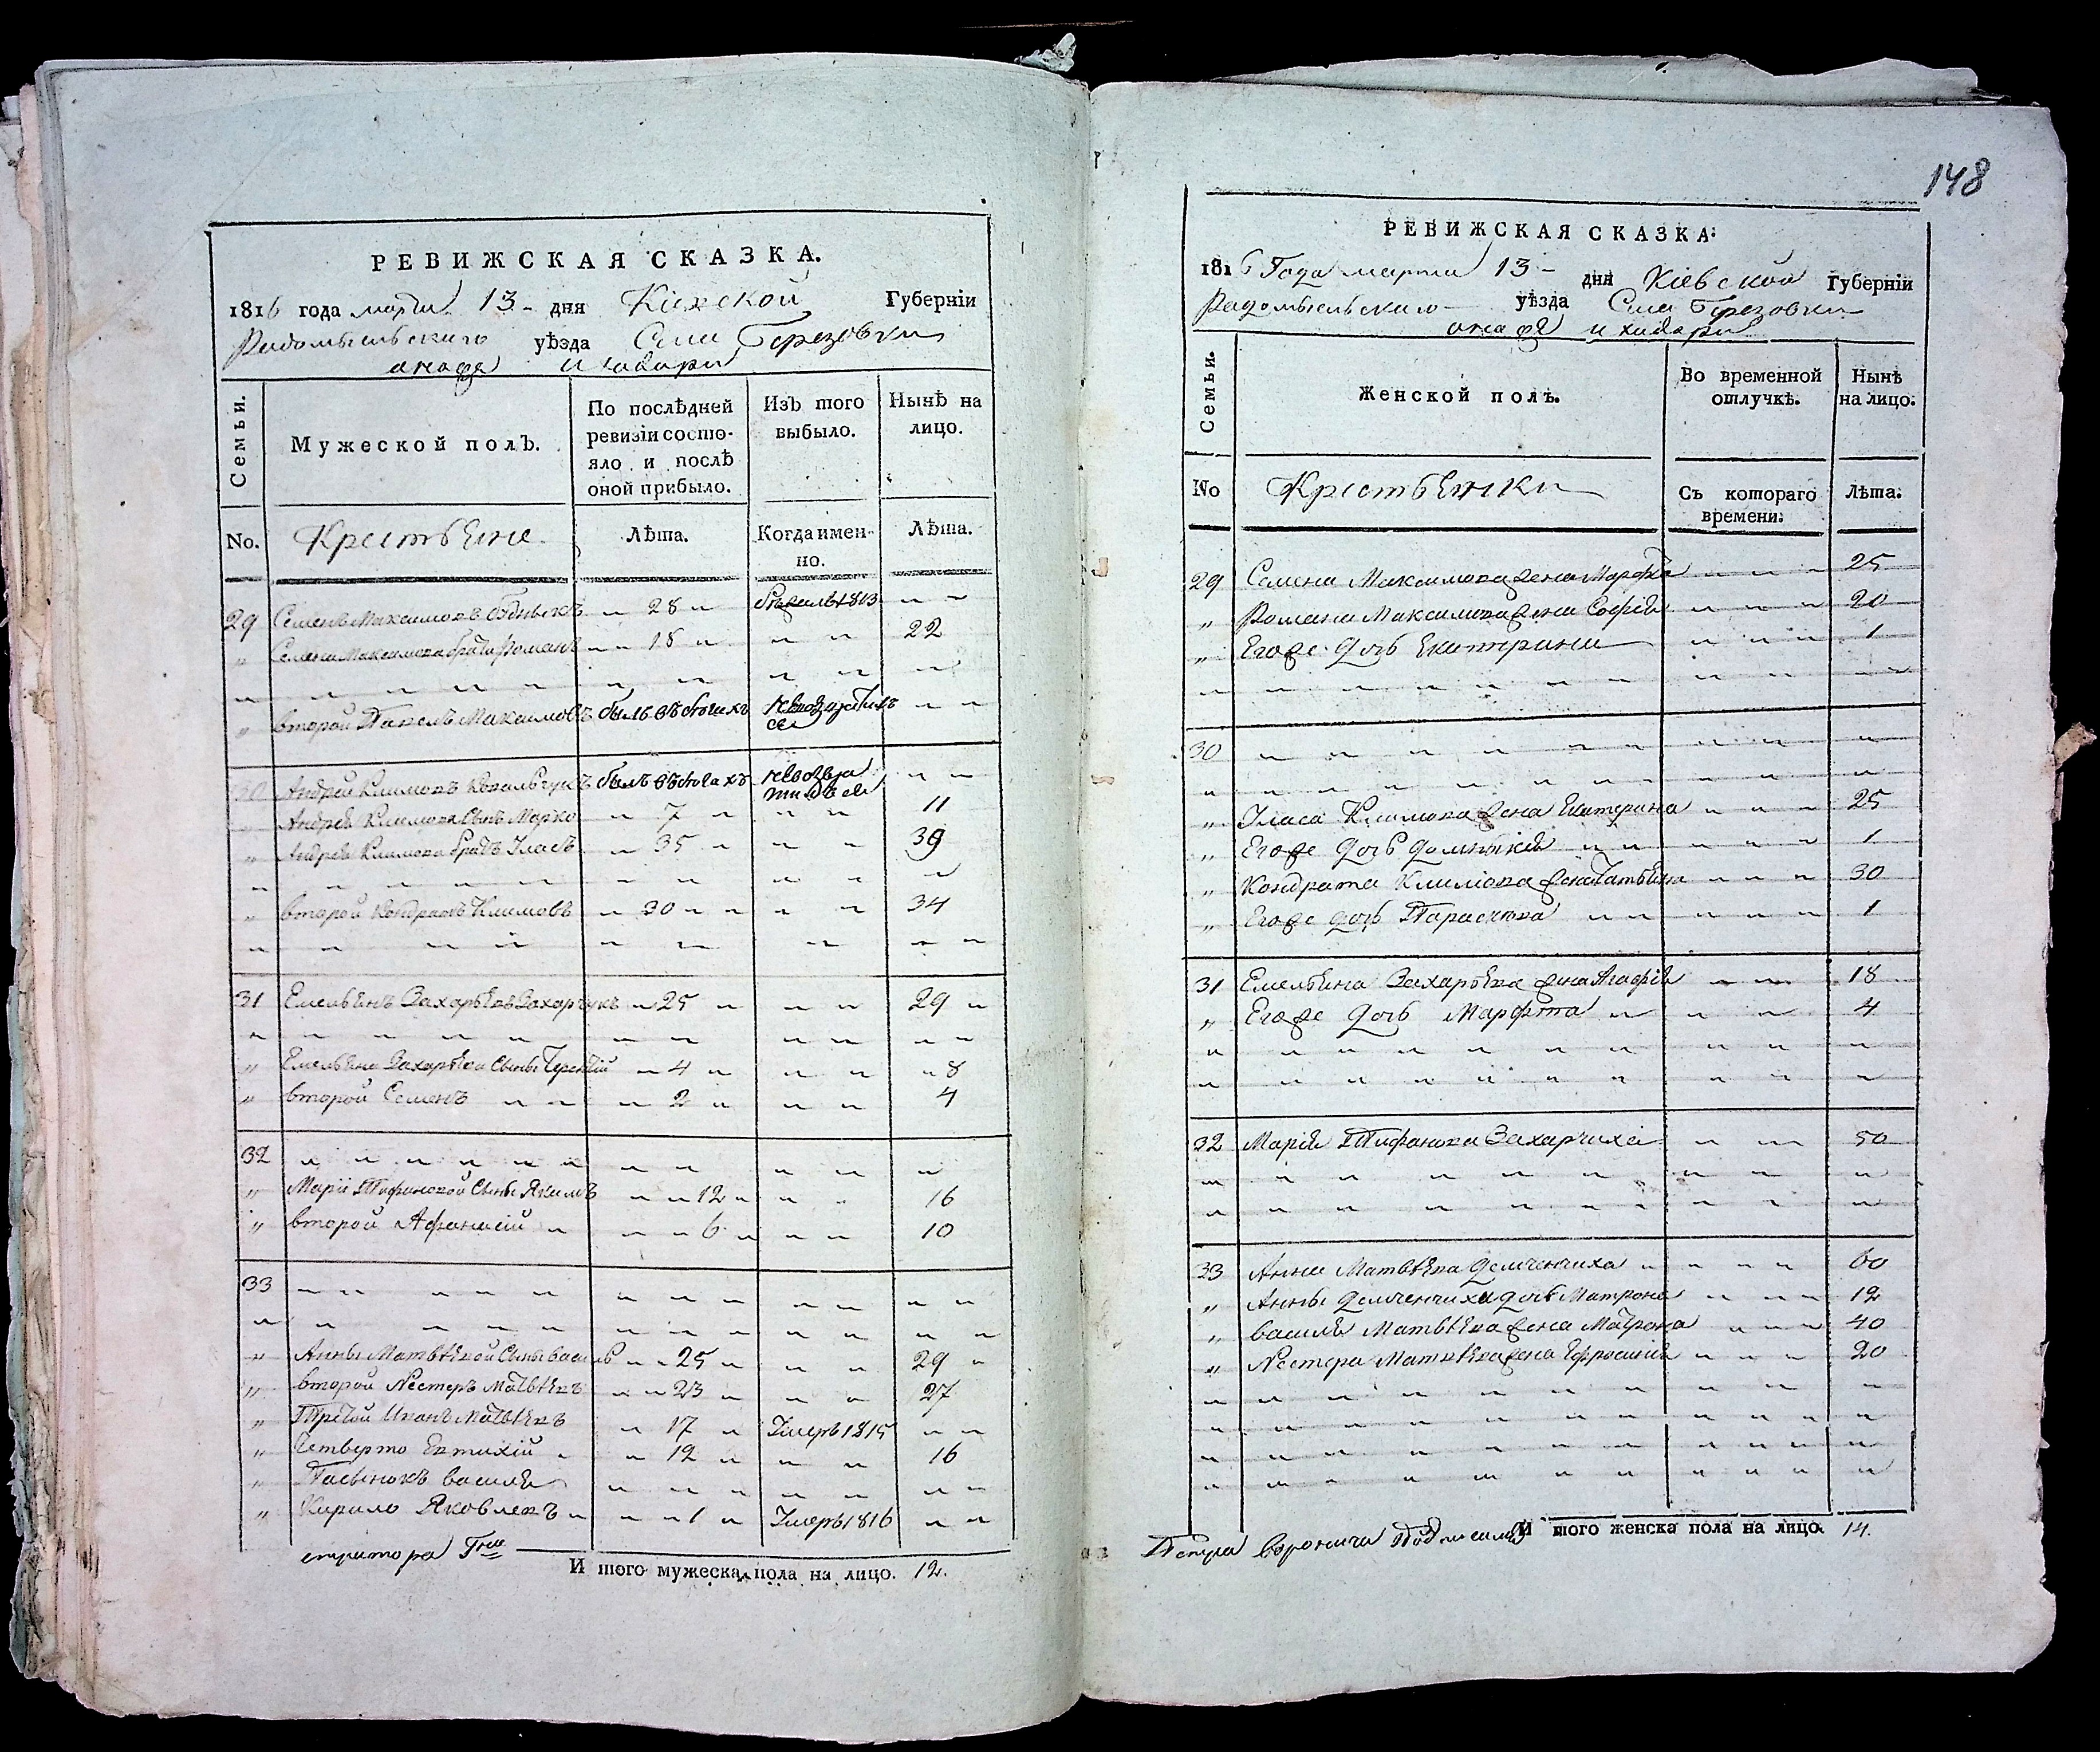 РЕВИЖСКАЯ СКАЗКА.
1816 года марта 13 - дня Кіевской Губерніи
Радомысльскаго уѣзда Села Березовки
Семьи.
Мужеской полъ.
По послѣдней ревизіи состояло и послѣ оной прибыло.
Изъ того выбыло.
Ныне на лицо.
No. Крестьѣне Лѣта. Когда именно. Лѣта.
29 Семенъ Максимовъ 28 1813
Семена Максимова братъ Романъ 18 22
второй Павелъ Максимовъ былъ въ бегахъ
30 Андрей Климовъ Ковальчукъ былъ въ бегахъ
Андрея Климова сынъ Марко 7 11
Андрея Климова братъ Уласъ 35 39
второй Кондратъ Климовъ 30 34
31 Емельѣнъ Захарьѣвъ Захарчукъ 25 29
Емельѣна Захарьѣва сыны Терентій 4 8
второй Семенъ 2 4
32
Маріи сыны Якимъ 12 16
второй Афанасій 6 10
33
Анны Матвѣевой сыны Василь 25 29
второй Нестеръ Матвѣевъ 23 27
Третой Иванъ Матвѣевъ 17 Умеръ 1815
Четверто Евтихій 12 16
Пасынокъ Василя
Кирило Яковлевъ 1 Умеръ 1816
И того мужеска пола на лицо. 12.
148
РЕВИЖСКАЯ СКАЗКА:
1816 Года марта 13 - дня Кіевской Губерніи
Радомысльскаго уѣзда Села Березовки
Семьи.
Женской полъ.
Во временной отлучкѣ.
Нынѣ на лицо:
No Крестьѣнки Съ котораго времени: Лѣта:
29 Семена Максимова жена Марфа 25
Романа Максимова жена Софія 20
Егоже дочь Екатерина 1
30
Уласа Климова жена Екатерина 25
Егоже дочь 1
Кондрата Климова жена Татьѣна 30
Егоже дочь Параскева 1
31 Емельѣна Захарьѣва жена Агафія 18
Егоже дочь Марфта 4
32 Марія Захарчиха 50
33 Анна Матвѣева Демченчиха 60
Анны Демченчихи дочь Матрона 12
Василя Матвѣева жена Матрона 40
Нестера Матвѣева жена Ефросинія 20
И того женска пола на лицо. 14.